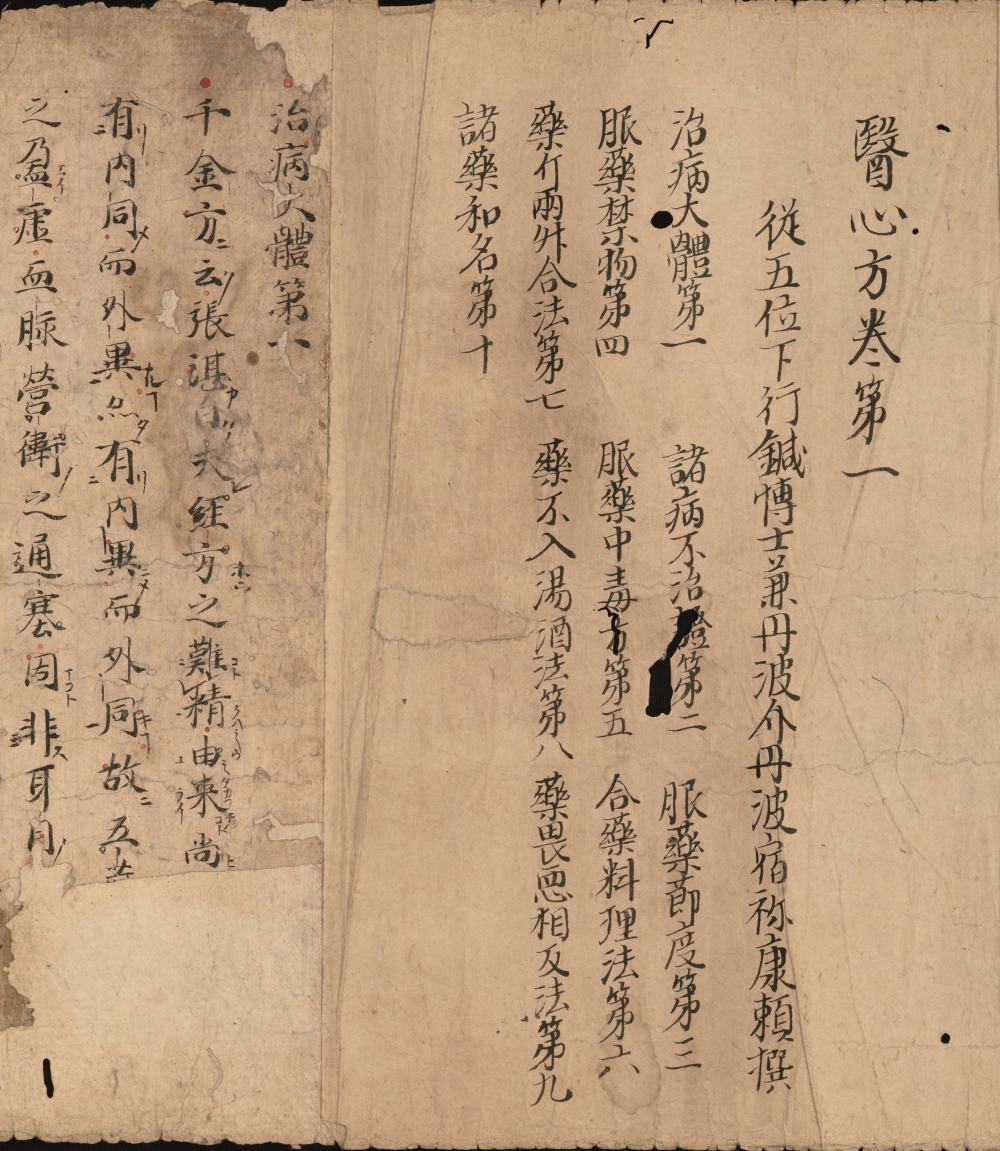 醫心方卷第一
從五位下行鍼博士兼丹波介丹波宿祢康頼撰
治病大體第一 諸病不治證第二 服藥節度第三
服藥禁物第四 服藥中毒方第五 合藥料理法第六
藥斤兩升合法第七 藥不入湯酒法第八 藥畏惡相反法第九
諸藥和名第十
治病大體第一
千金方云張湛曰夫經方之難精由來尚
有內同而外異亦有內異而外同故五
之盈虛血脉營衛之通塞固非耳目